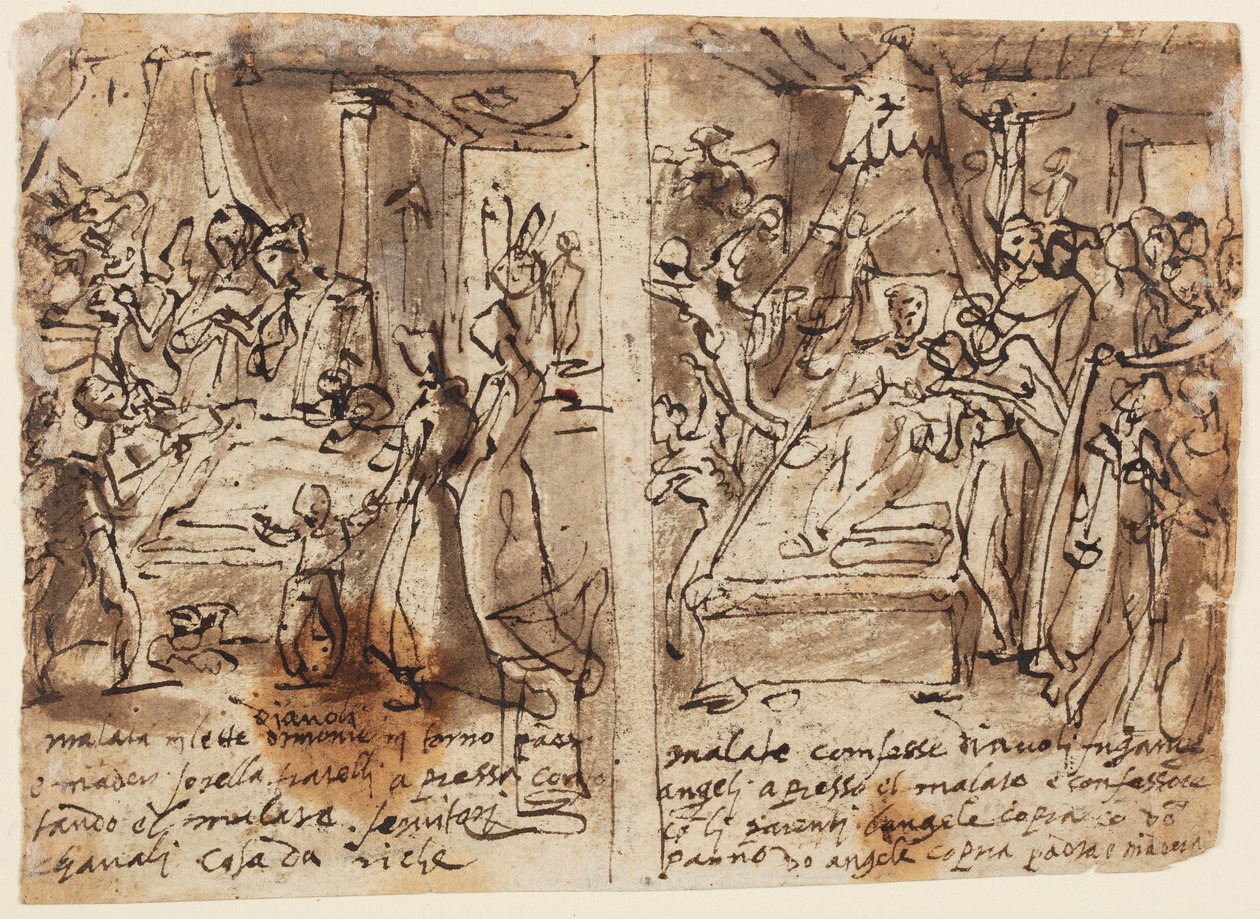 djavoli
malata in lette dimonie in torno padr
e mader sorella fratelli a presso confo
tando el malato. servitori
chavali casa da riche
malato comfesse diavoli fugande
angeli a presso el malato e confessore
co li parenti angele copra co do
panno do angele copria padra e madera